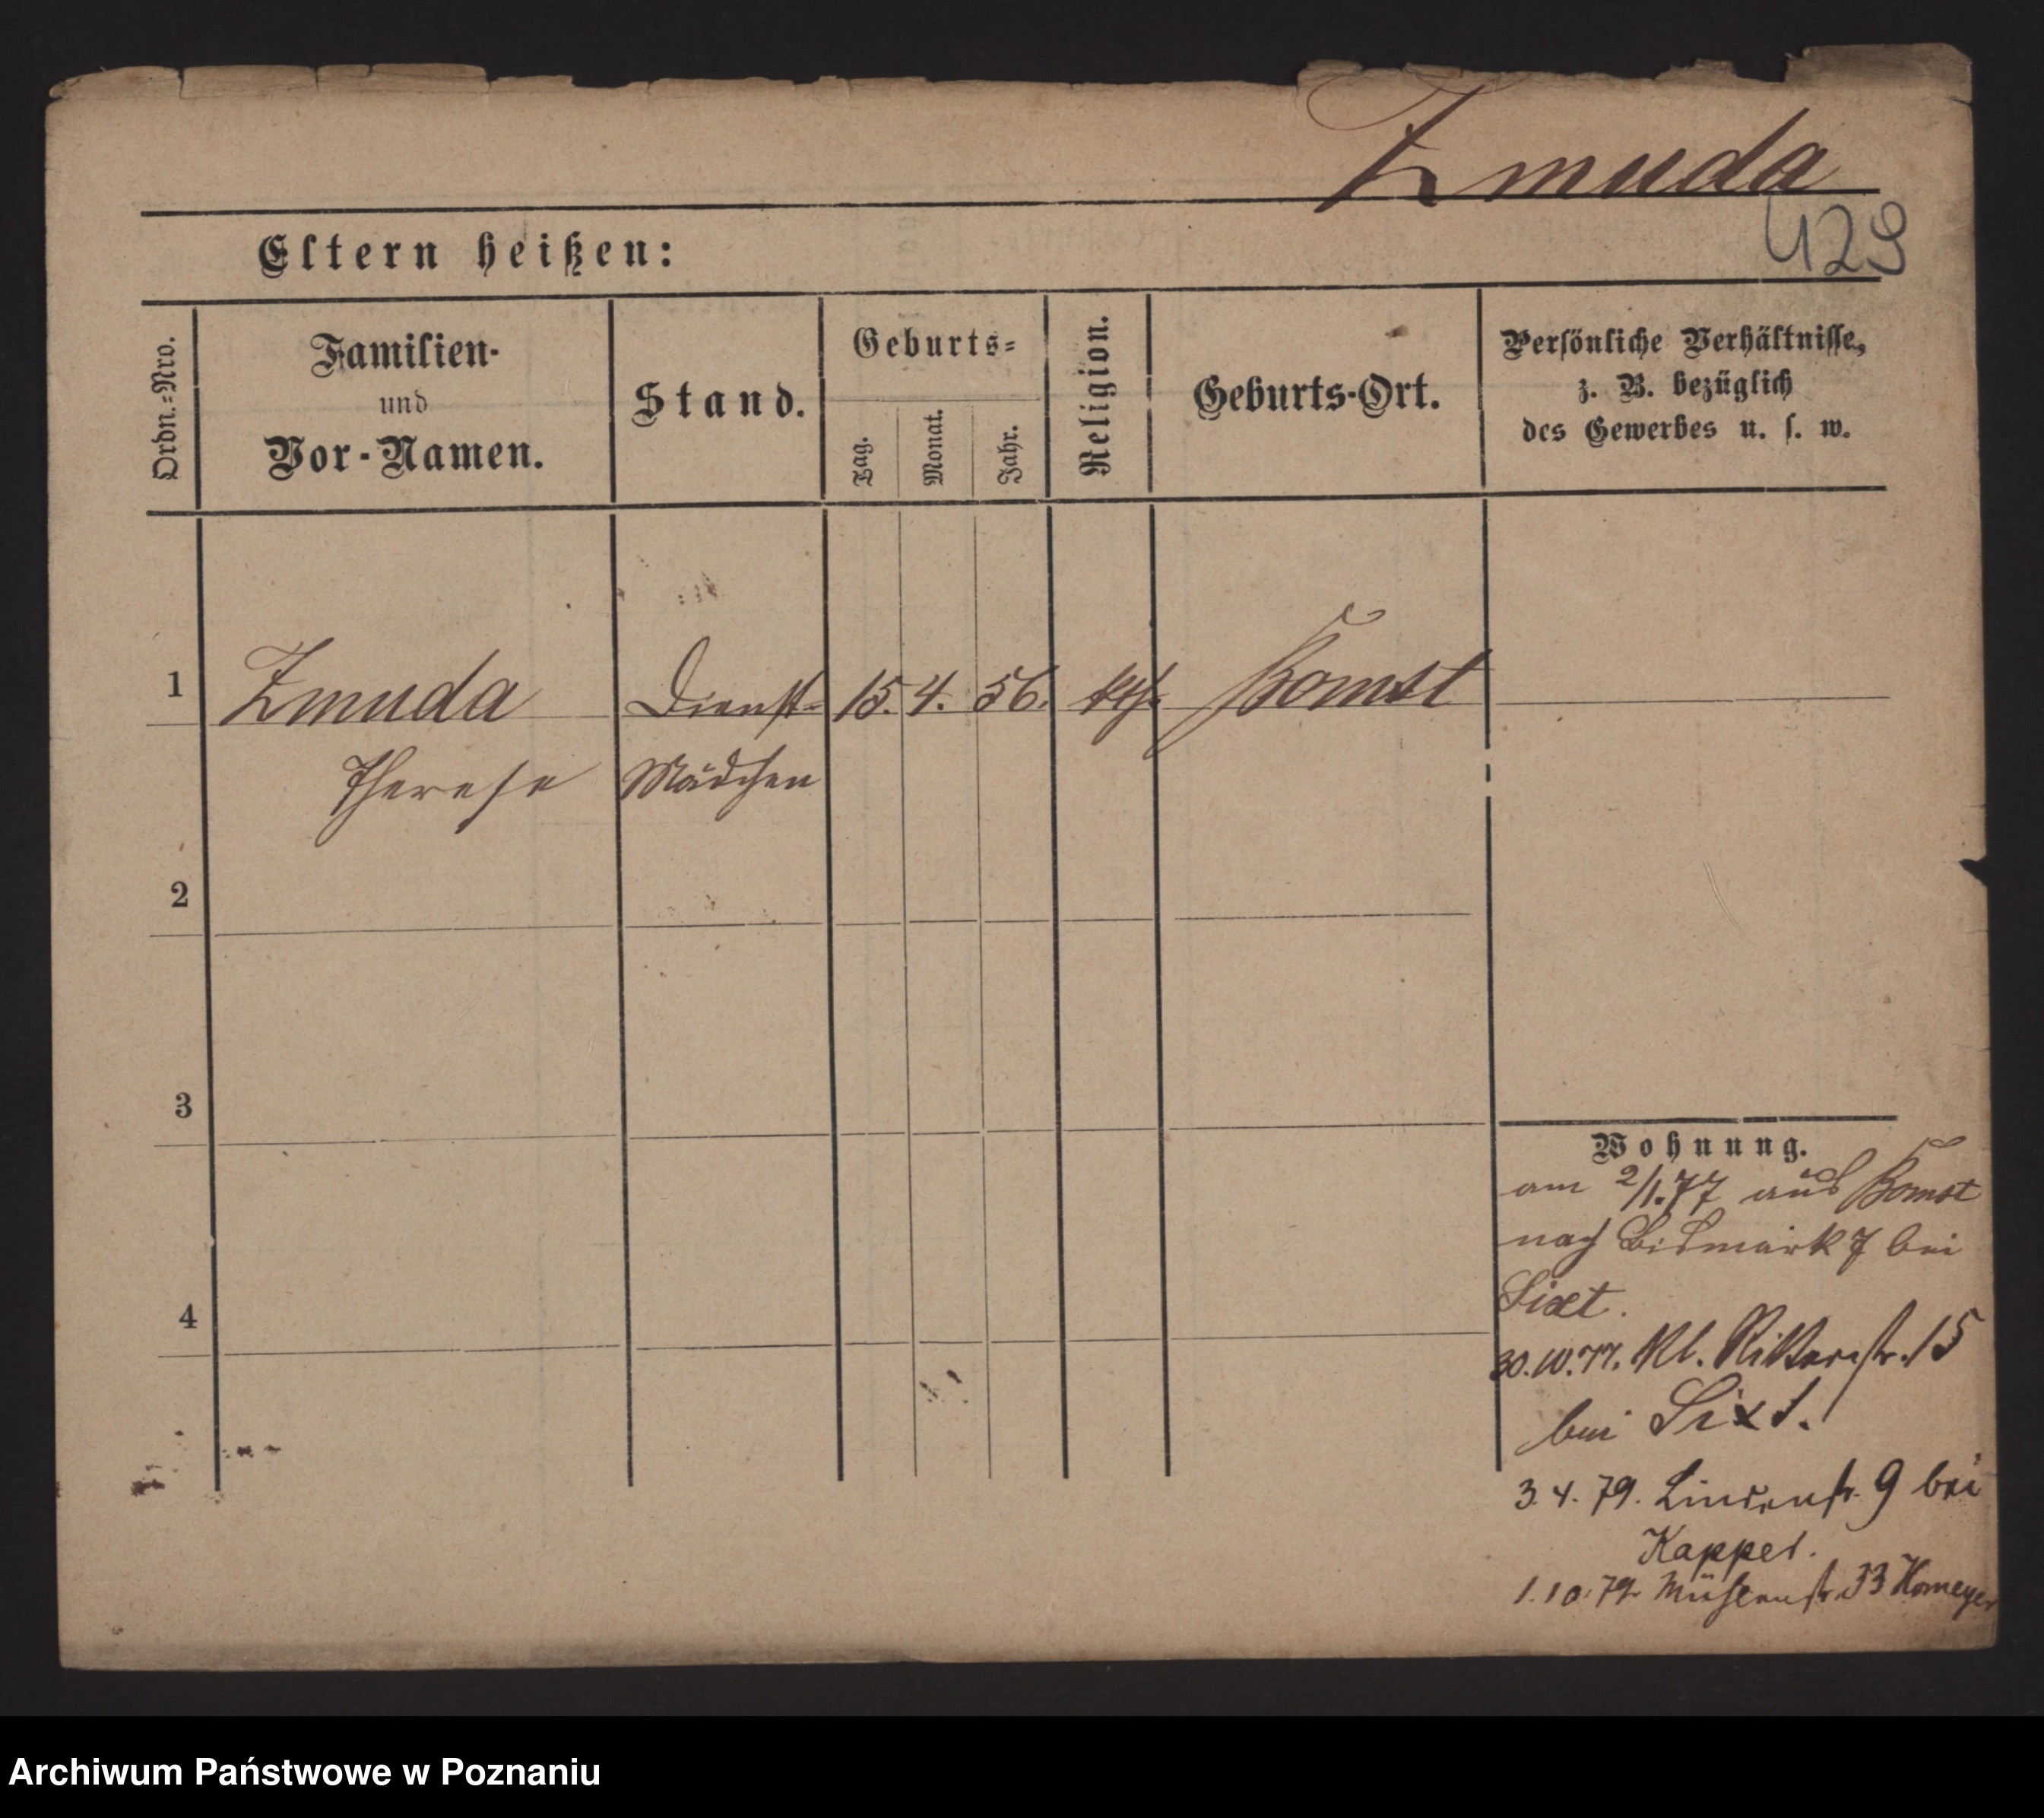 Zmuda
429
Eltern heißen:
Ordn.=Nro.
Familien-
und
Vor-Namen.
Stand.
Geburts=
Tag.
Monat.
Jahr.
Religion.
Geburts-Ort.
Persönliche Verhältnisse,
z. B. bezüglich
des Gewerbes u. s. w.
1 Zmuda Dienst- 15. 4. 56. kth. Bomst
Therese Mädchen
2
3
4
Wohnung.
am 2/1.77 aus Bomst
nach Bismark 7 bei
Sixt.
30.10.77. Kl. Ritterstr. 15
bei Sixt.
3.4.79. Lindenstr. 9 bei
Kappel.
1.10.79 Mühlenstr. 33 Homeyer
Archiwum Państwowe w Poznaniu